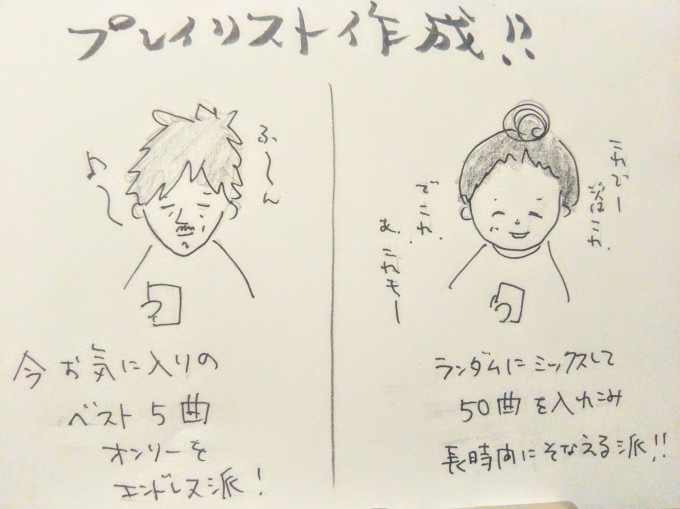 プレイリスト作成!!
ふ〜ん
♪〜
今お気に入りの
ベスト5曲
オンリーを
エンドレス派!
これでー
次はこれ、
でこれ、
あ、これもー
ランダムにミックスして
50曲を入れこみ
長時間にそなえる派!!